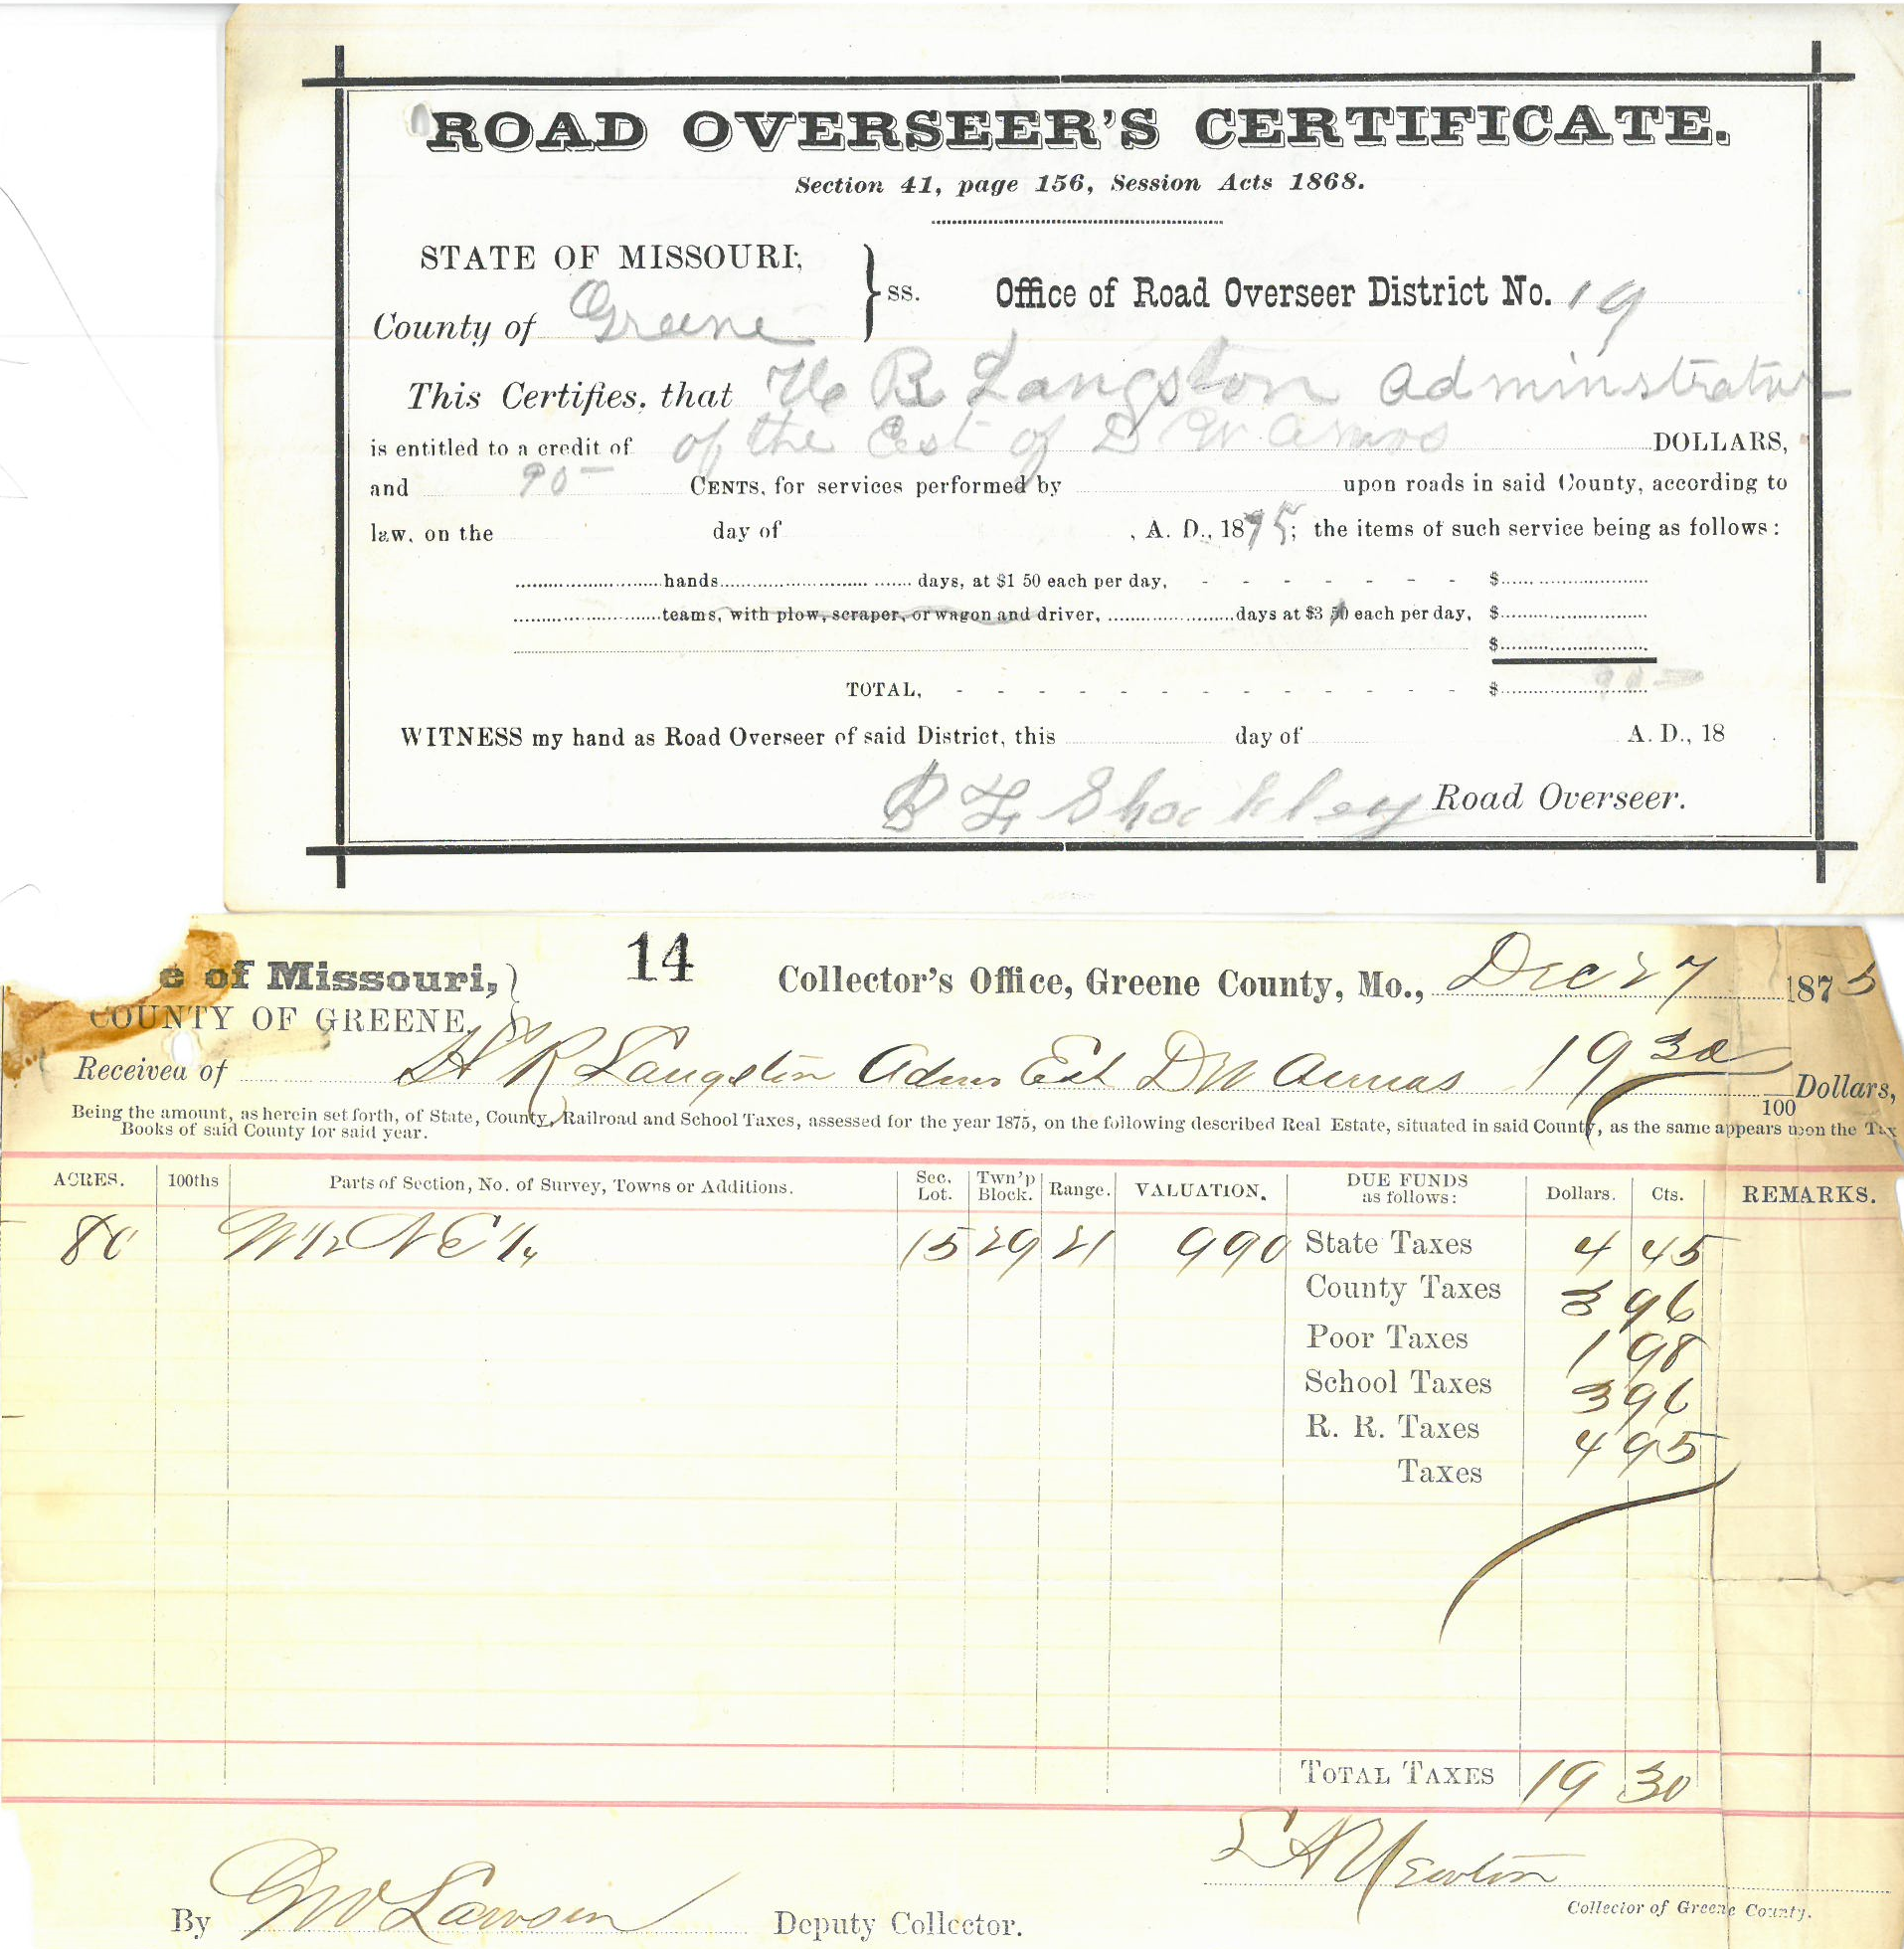 ROAD OVERSEER'S CERTIFICATE.
Section 41, page 156, Session Acts 1868.
STATE OF MISSOURI,
County of Greene
ss.
Office of Road Overseer District No. 19
This Certifies, that H R Langston Adminstrator
is entitled to a credit of of the Est of D W Amos DOLLARS,
and 90 CENTS, for services performed by upon roads in said County, according to
law, on the day of , A. D., 1875; the items of such service being as follows:
hands days, at $1 50 each per day, - - - - - - - $
teams, with plow, scraper, or wagon and driver, days at $3 50 each per day, $
$
TOTAL, - - - - - - - - - - - - - $ 90
WITNESS my hand as Road Overseer of said District, this day of A. D., 18
B F Shockley Road Overseer.
e of Missouri,
COUNTY OF GREENE,
14
Collector's Office, Greene County, Mo., Dec 27 1875
Received of H R Langston Adms Est D W Amos 19 30/100 Dollars,
Being the amount, as herein set forth, of State, County, Railroad and School Taxes, assessed for the year 1875, on the following described Real Estate, situated in said County, as the same appears upon the Tax
Books of said County for said year.
ACRES. 100ths Parts of Section, No. of Survey, Towns or Additions. Sec. Lot. Twn'p Block. Range. VALUATION. DUE FUNDS as follows: Dollars. Cts. REMARKS.
80 W 1/2 N E 1/4 15 29 21 990 State Taxes 4 45
County Taxes 3 96
Poor Taxes 1 98
School Taxes 3 96
R. R. Taxes 4 95
Taxes
TOTAL TAXES 19 30
Newton
Collector of Greene County.
By G W Lawson Deputy Collector.